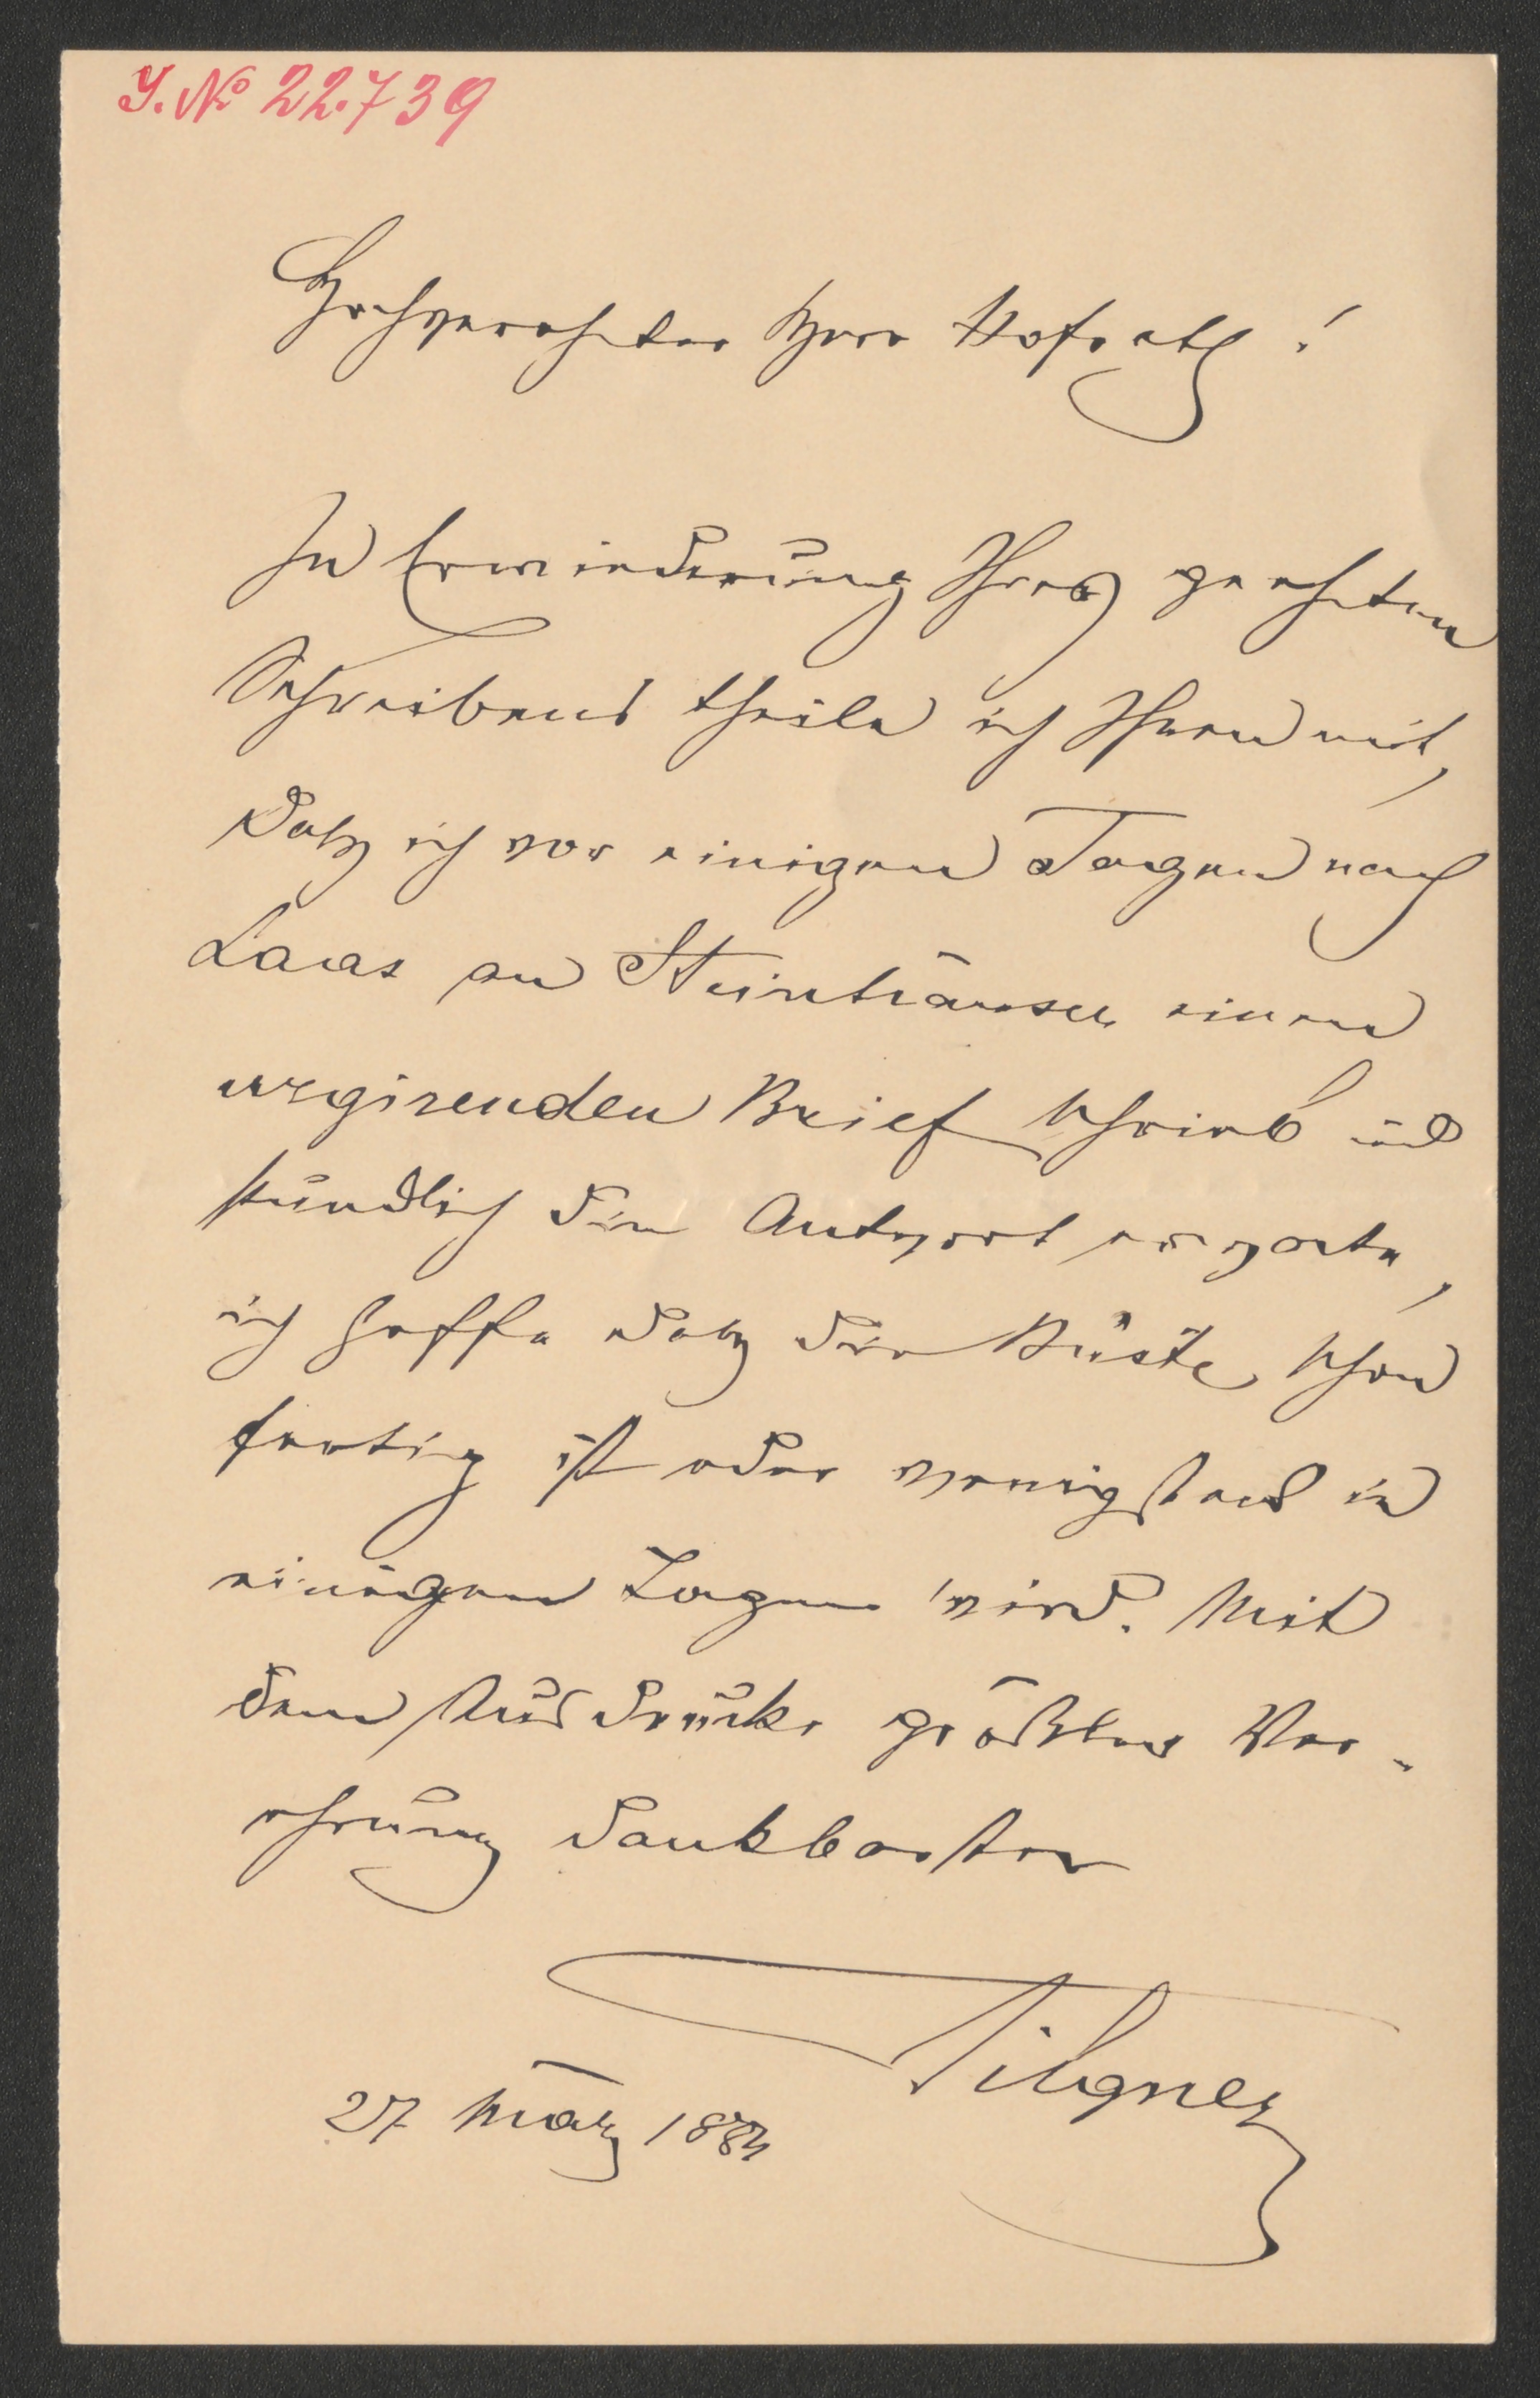 J. No 22.739
Hochverehrter Herr Hofrath!
In Erwiederung Ihres geehrten
Schreibens theile ich Ihnen mit,
daß ich vor einigen Tagen nach
Laas an Steinhäuser einen
urgirenden Brief schrieb und
stündlich die Antwort erwarte,
ich hoffe daß die Büste schon
fertig ist oder wenigstens in
einigen Tagen wird. Mit
dem Ausdrucke größter Ver-
ehrung dankbarster
Tilgner
27 März 188